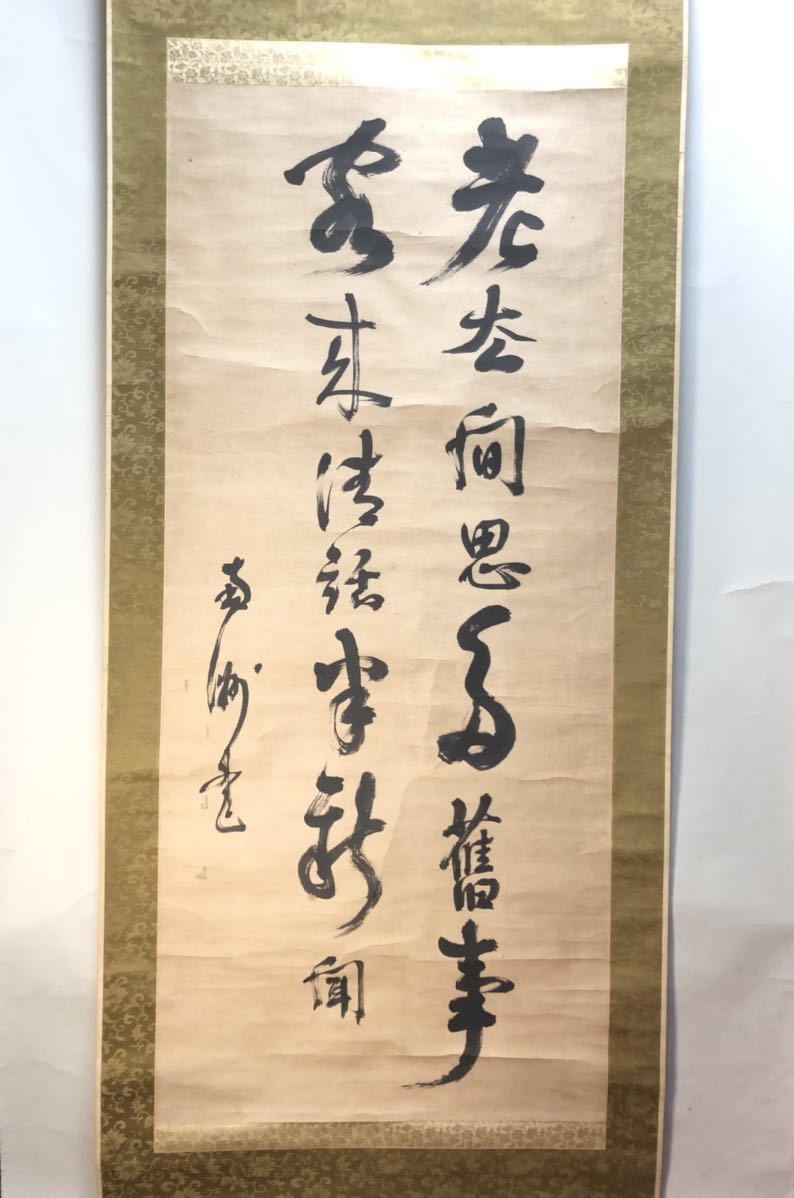 老去閒思多舊事
客來清話半新聞
南洲書